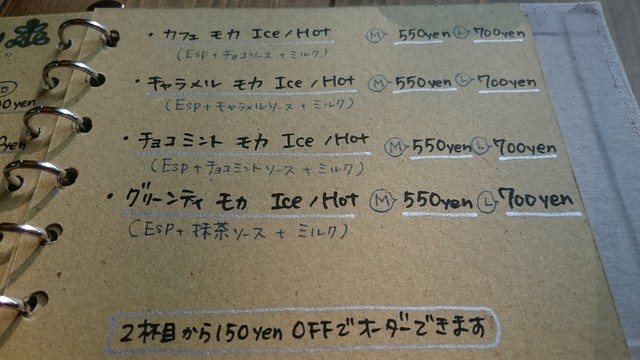 ・カフェ モカ Ice/Hot Ⓜ 550yen Ⓛ 700yen
(Esp+チョコソース+ミルク)
・キャラメル モカ Ice/Hot Ⓜ 550yen Ⓛ 700yen
(Esp+キャラメルソース+ミルク)
・チョコミント モカ Ice/Hot Ⓜ 550yen Ⓛ 700yen
(Esp+チョコミントソース+ミルク)
・グリーンティ モカ Ice/Hot Ⓜ 550yen Ⓛ 700yen
(Esp+抹茶ソース+ミルク)
2杯目から150yen OFFでオーダーできます